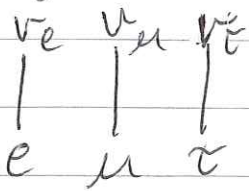 νe νμ ντ
e μ τ